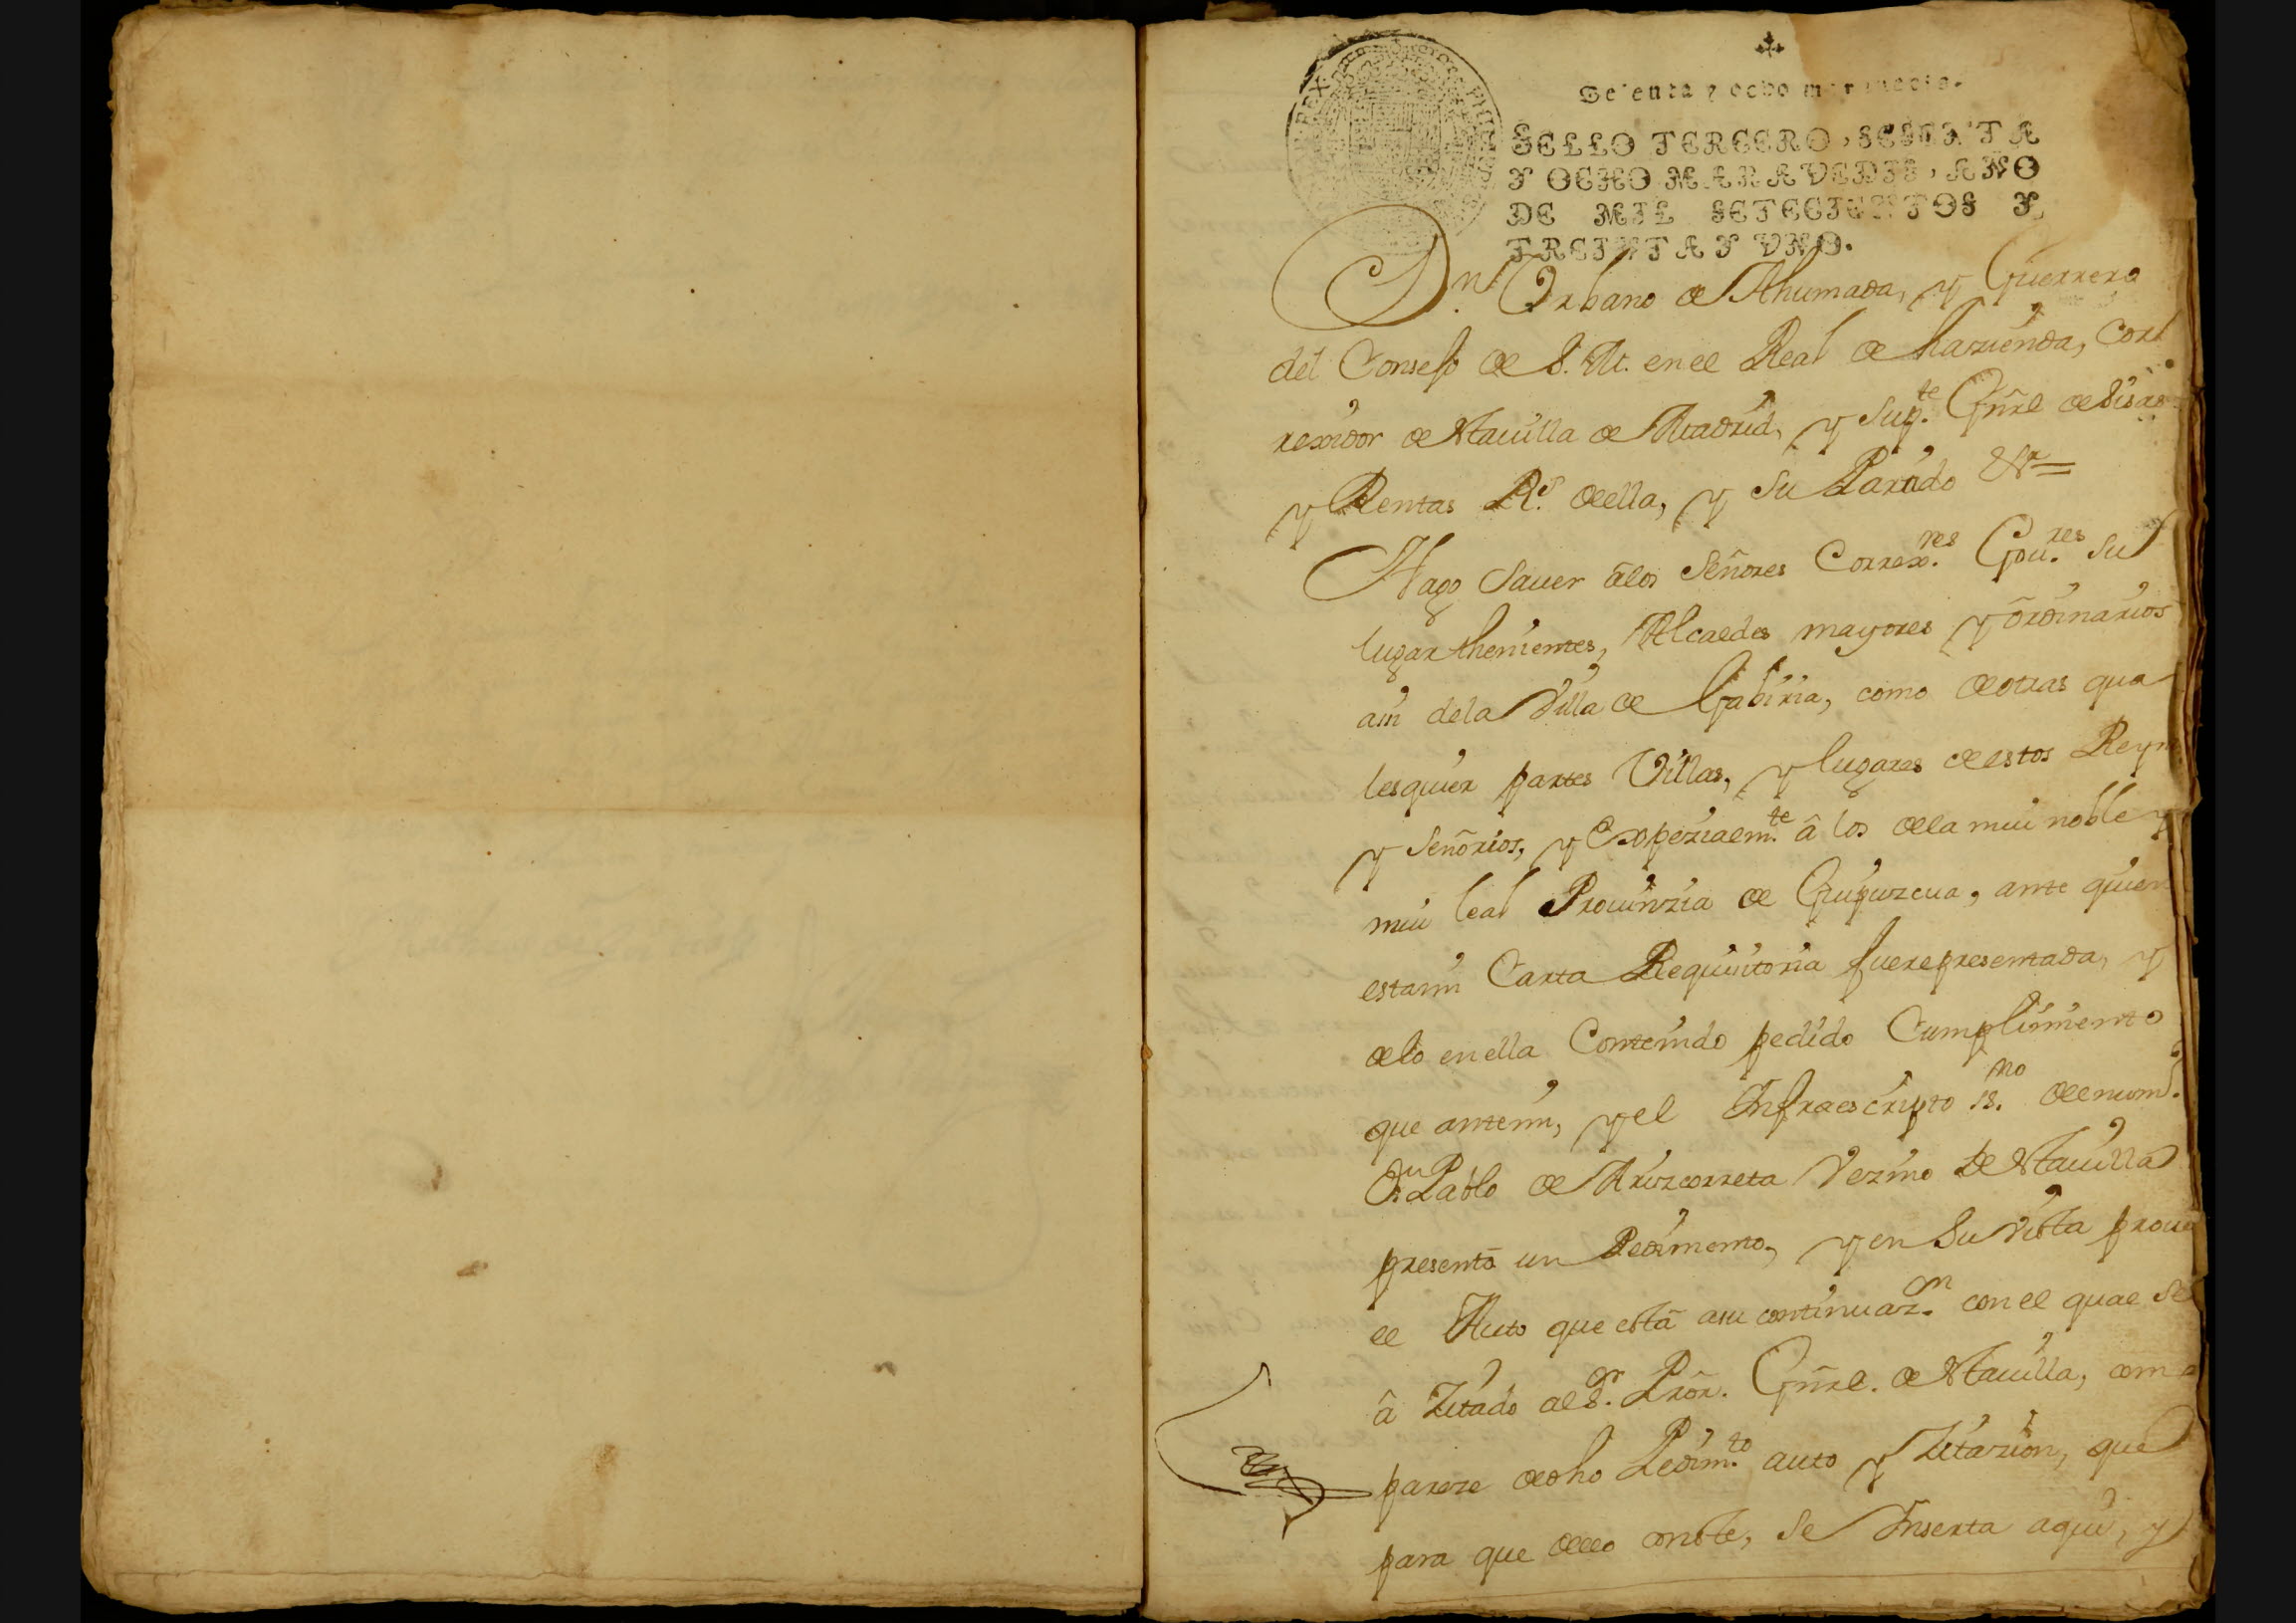 Sesenta y ocho maravedis.
SELLO TERCERO, SESENTA
Y OCHO MARAVEDIS, AÑO
DE MIL SETECIENTOS Y
TREINTA Y VNO.
Dn. Vrbano de Ahumada, y Guerrero
del Consejo de S. M. en el Real de hazienda, Corr
rexidor de esta villa de Madrid, y Supte. Gñrl de Sisas
y Rentas Rs. de ella, y su Partido &a =
Hago Sauer â los Señores Correxres. Goures. su
lugar thenientes, Alcaldes mayores y ôrdinarios
asi dela Villa de Gabiria, como de otras qua
lesquier partes Villas, y lugares de estos Reyn
y Señorios, y Expezialmte. â los dela mui noble y
mui leal Prouinzia de Guipuzcua, ante quien
esta mi Carta Requisitoria fuere presentada, y
de lo en ella Contenido pedido Cumplimiento
que ante mi, y el Infraescripto sno. del num.
Dn. Pablo de Aruzcorreta Vezino de esta uilla
presentô un Pedimento, y en su vista proue
el Auto que estâ asu continuazon. con el qual se
â Zitado al Sr. Prõr. Gñrl. de esta uilla, com
pareze de dho Pedimto. auto y Zitazion, que
para que dello conste, se Inserta aqui, y